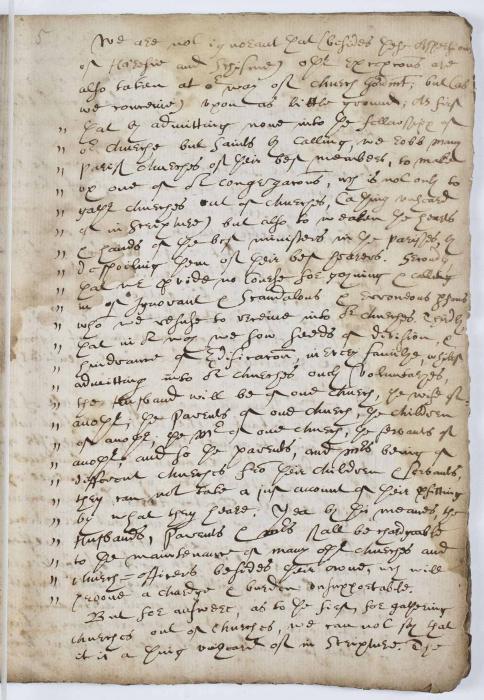 5 We are not ignorant that (besides these aspersions
of Heresie and Schisme) other exceptions are
also taken at or way of church goverment; but (as
we conceive) upon as little ground; As first
„ that by admitting none into the fellowship of
„ or churche but saints by calling, we robb many
„ parish churches of their best members, to make
„ up one of or congregations, wch is not only to
„ gather churches out of churches, (a thing unheard
„ of in scripture) but also to weaken the hearts
„ & hands of the best ministers in the parishes by
„ despoiling them of their best hearers. Secondly
„ that we provide no course for gayning & calling
„ in of ignorant & scandalous & erroneous psons
„ who we refuse to receive into or churches. Thirdly
„ that in or way we sow seeds of division &
„ hindrance of edification, in every familye, whilst
„ admitting into or churches only voluntaryes,
„ the Husband will be of one church, the wife of
„ another, the parents of one church, the children
„ of another, the mr of one church, the servants of
„ another, and so the parents, and mrs being of
„ different churches fro their children & servants,
„ they can not take a just account of their pfitting
„ by what they heare. Yea by this meanes the
„ Husbands, parents & mrs shall be chargeable
„ to the maintenance of many other churches and
„ church-officers besides their owne, wch will
„ prove a charge & burden unsupportable.
But for answeer, as to the first for gathering
churches out of churches, we can not say that
it is a thing unheard of in Scripture. The